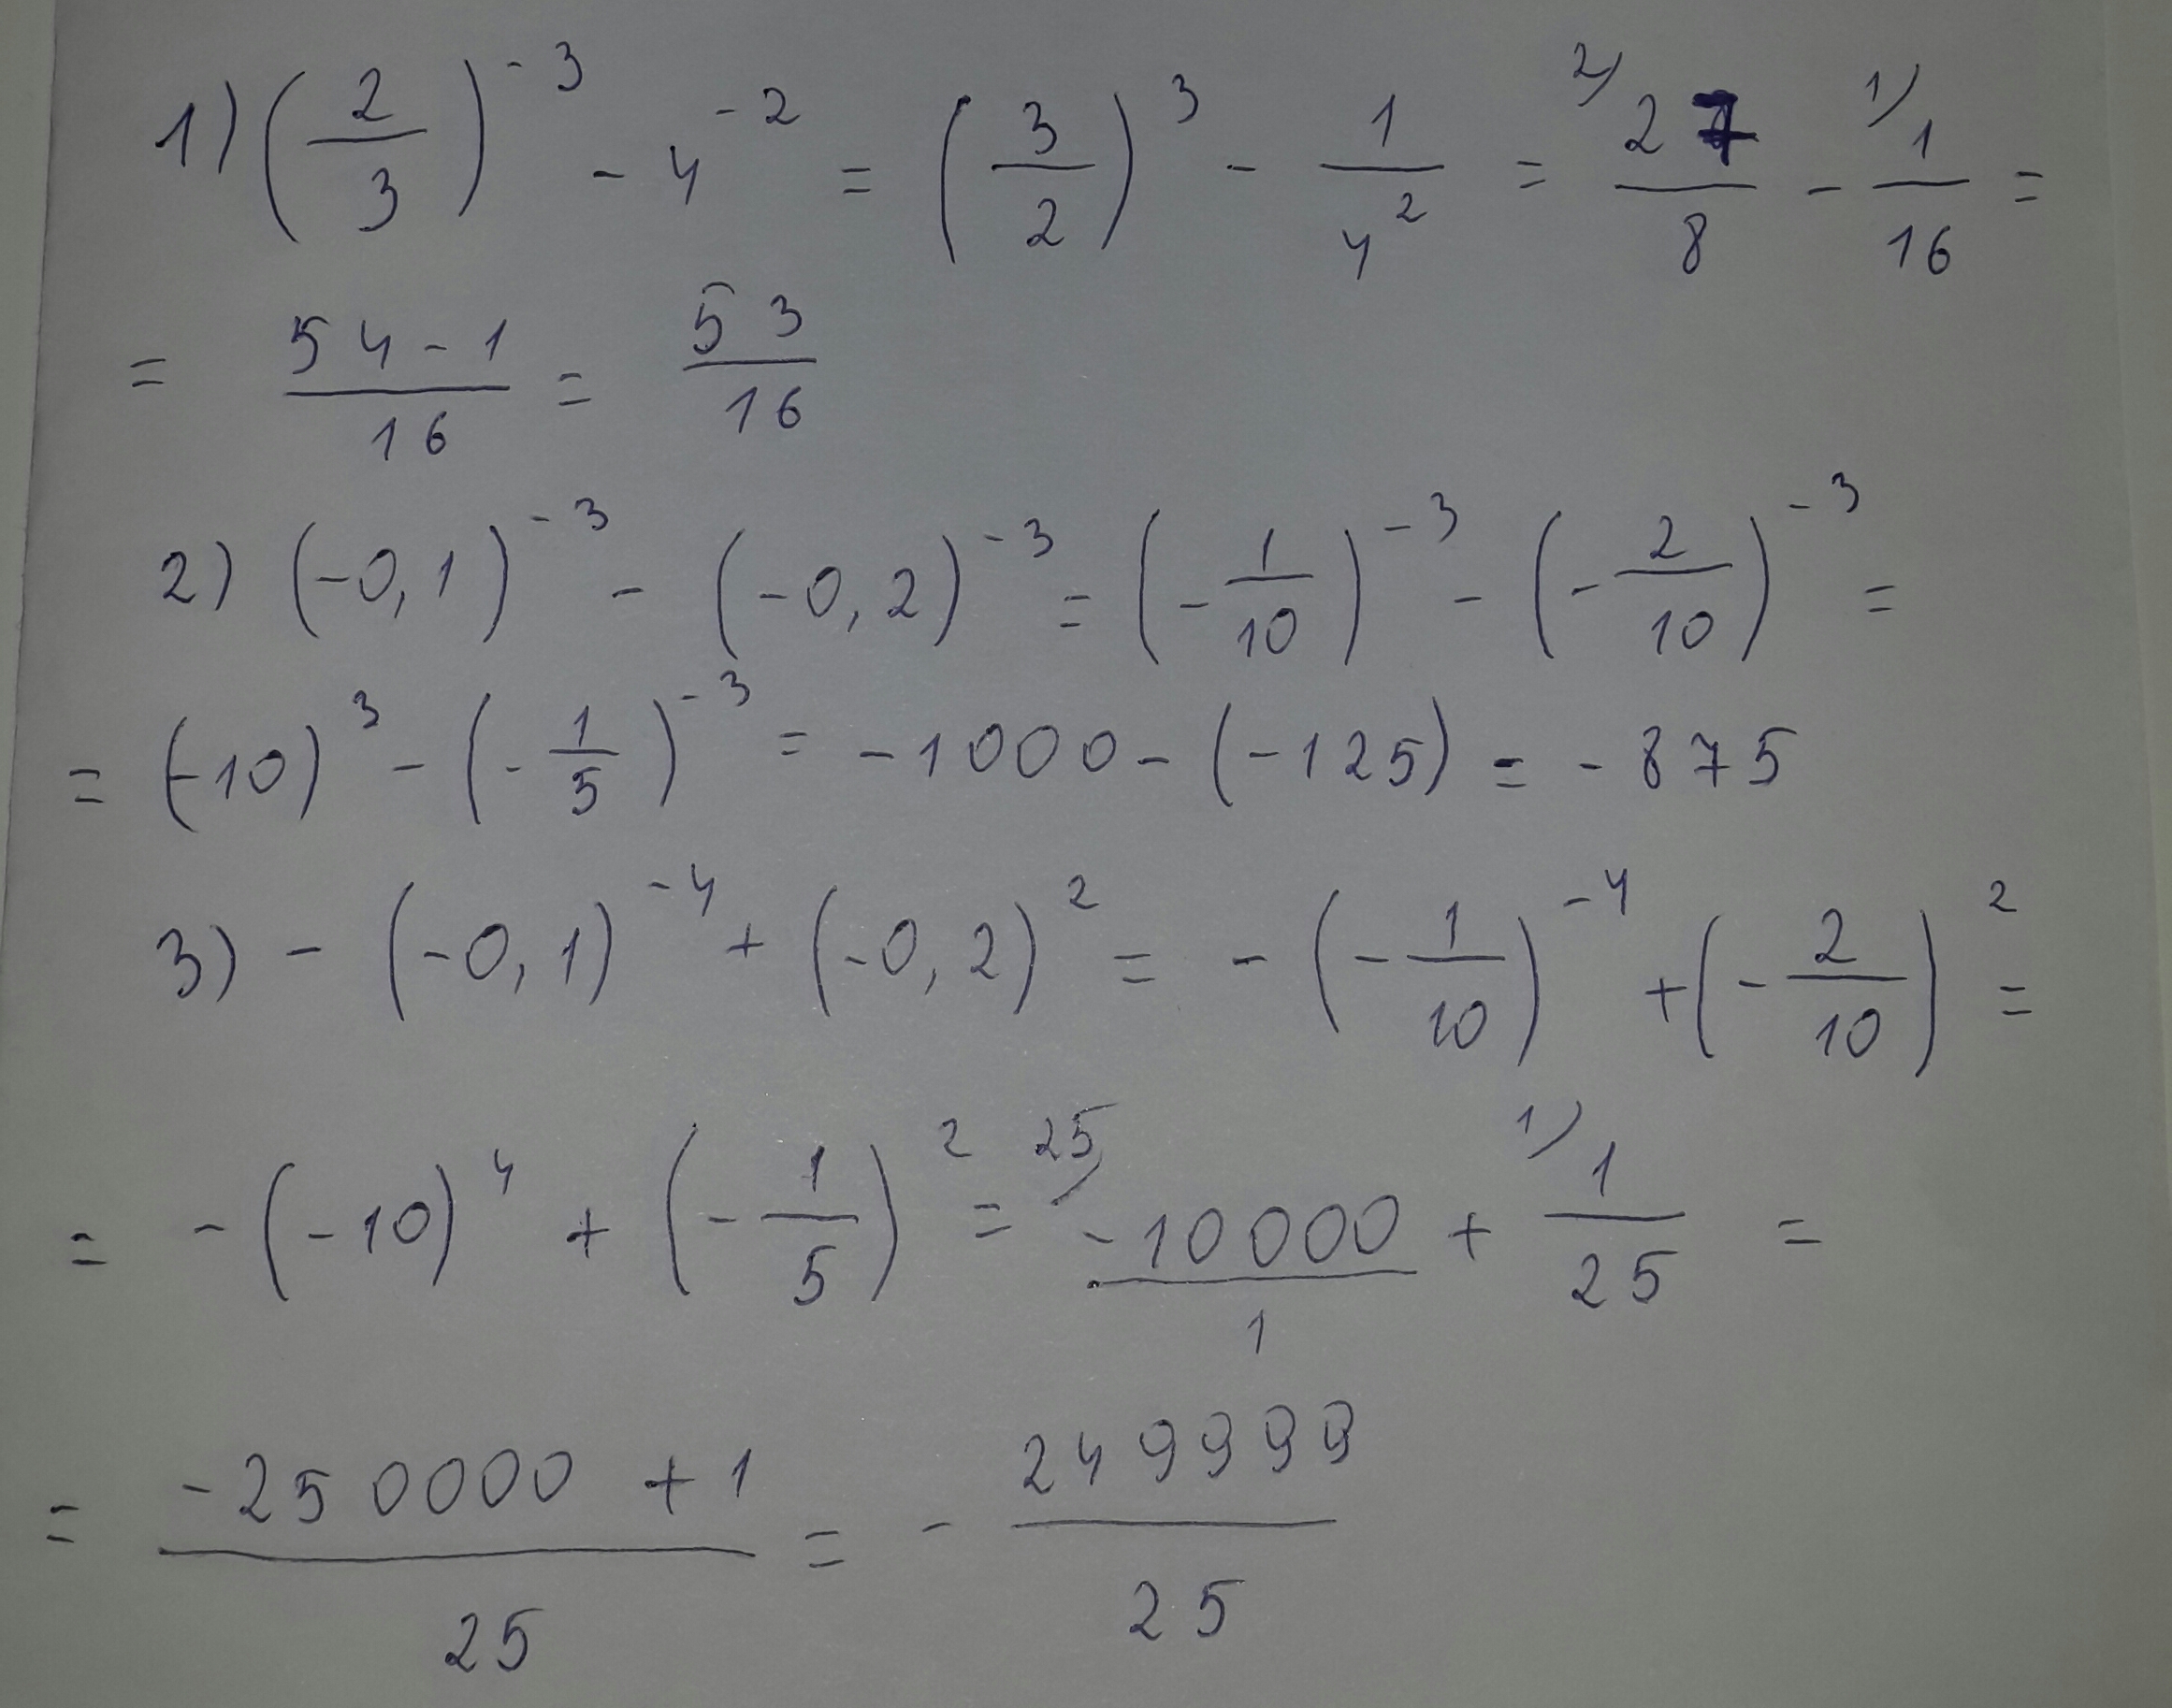 1) (2/3)^-3 - 4^-2 = (3/2)^3 - 1/4^2 = 2) 27/8 - 1) 1/16 =
= 54-1/16 = 53/16
2) (-0,1)^-3 - (-0,2)^-3 = (-1/10)^-3 - (-2/10)^-3 =
= (-10)^3 - (-1/5)^-3 = -1000 - (-125) = -875
3) - (-0,1)^-4 + (-0,2)^2 = - (-1/10)^-4 + (-2/10)^2 =
= - (-10)^4 + (-1/5)^2 = 25) -10000/1 + 1) 1/25 =
= -250000 + 1/25 = - 249999/25